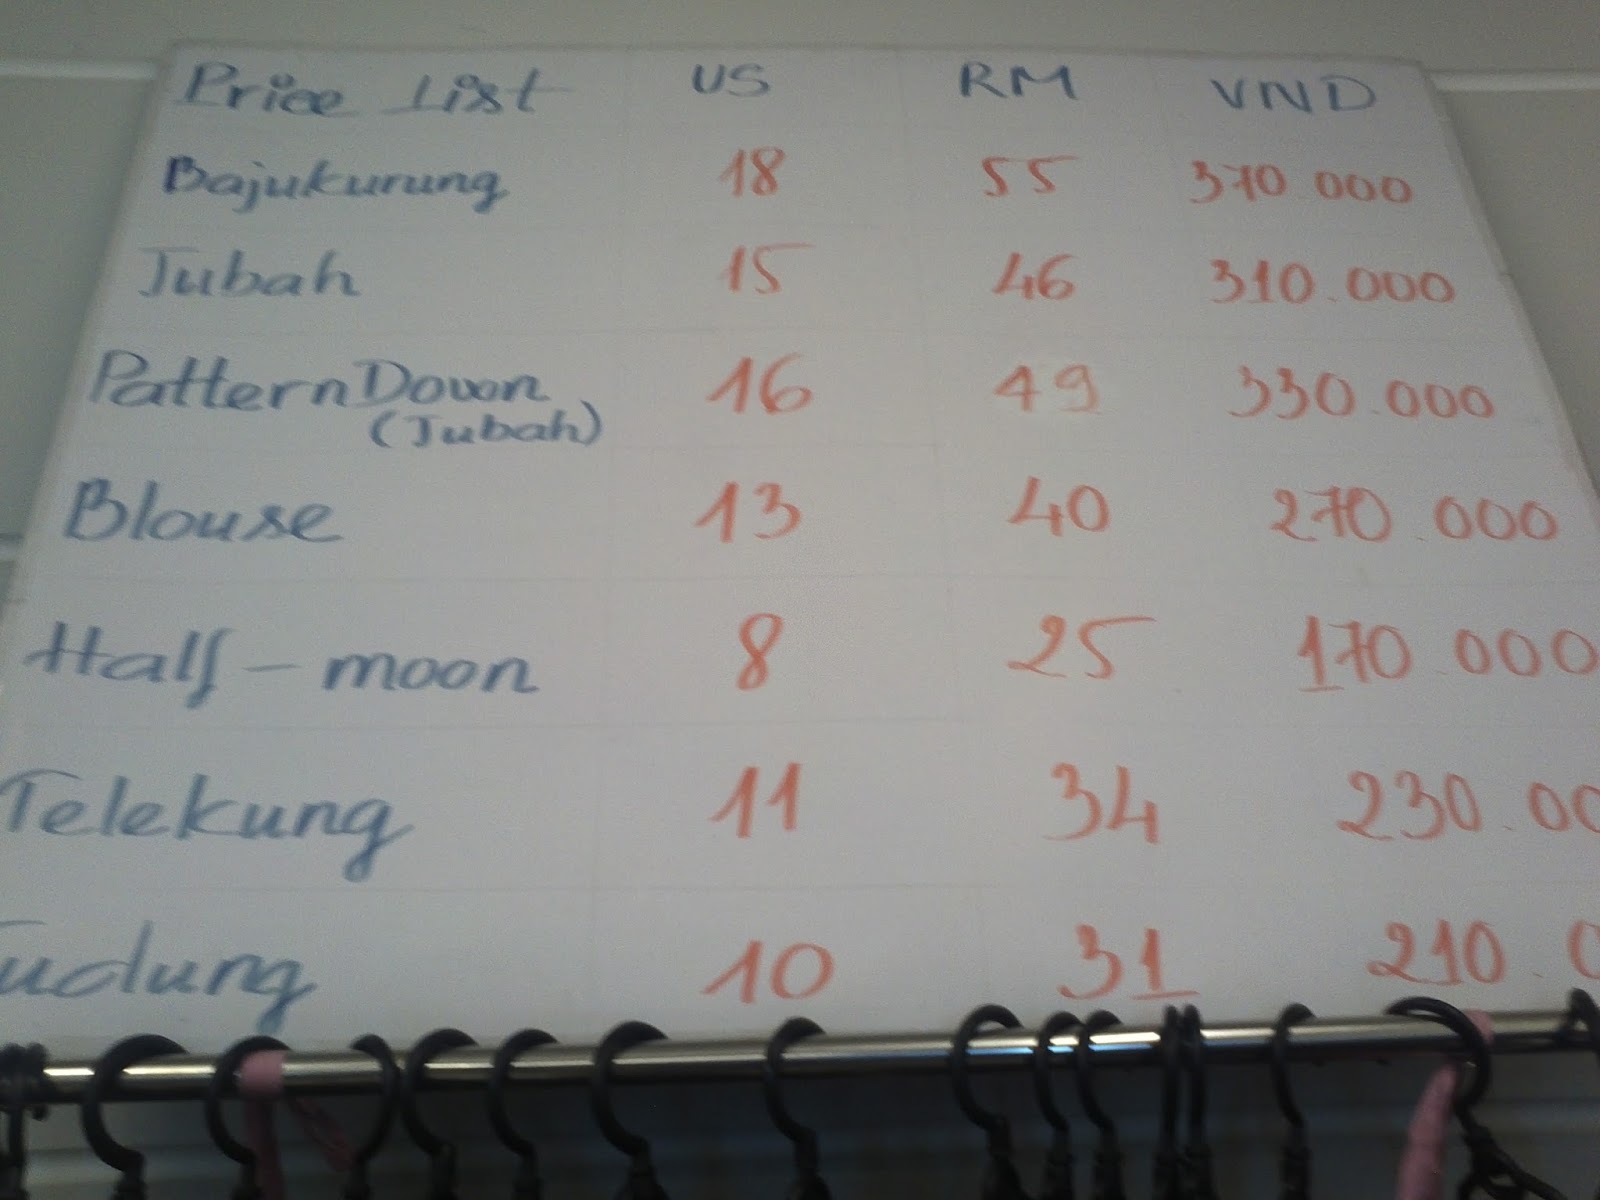 Price List US RM VND
Bajukurung 18 55 370.000
Jubah 15 46 310.000
Pattern Down 16 49 330.000
(Jubah)
Blouse 13 40 270.000
Half-moon 8 25 170.000
Telekung 11 34 230.00
udung 10 31 210.0